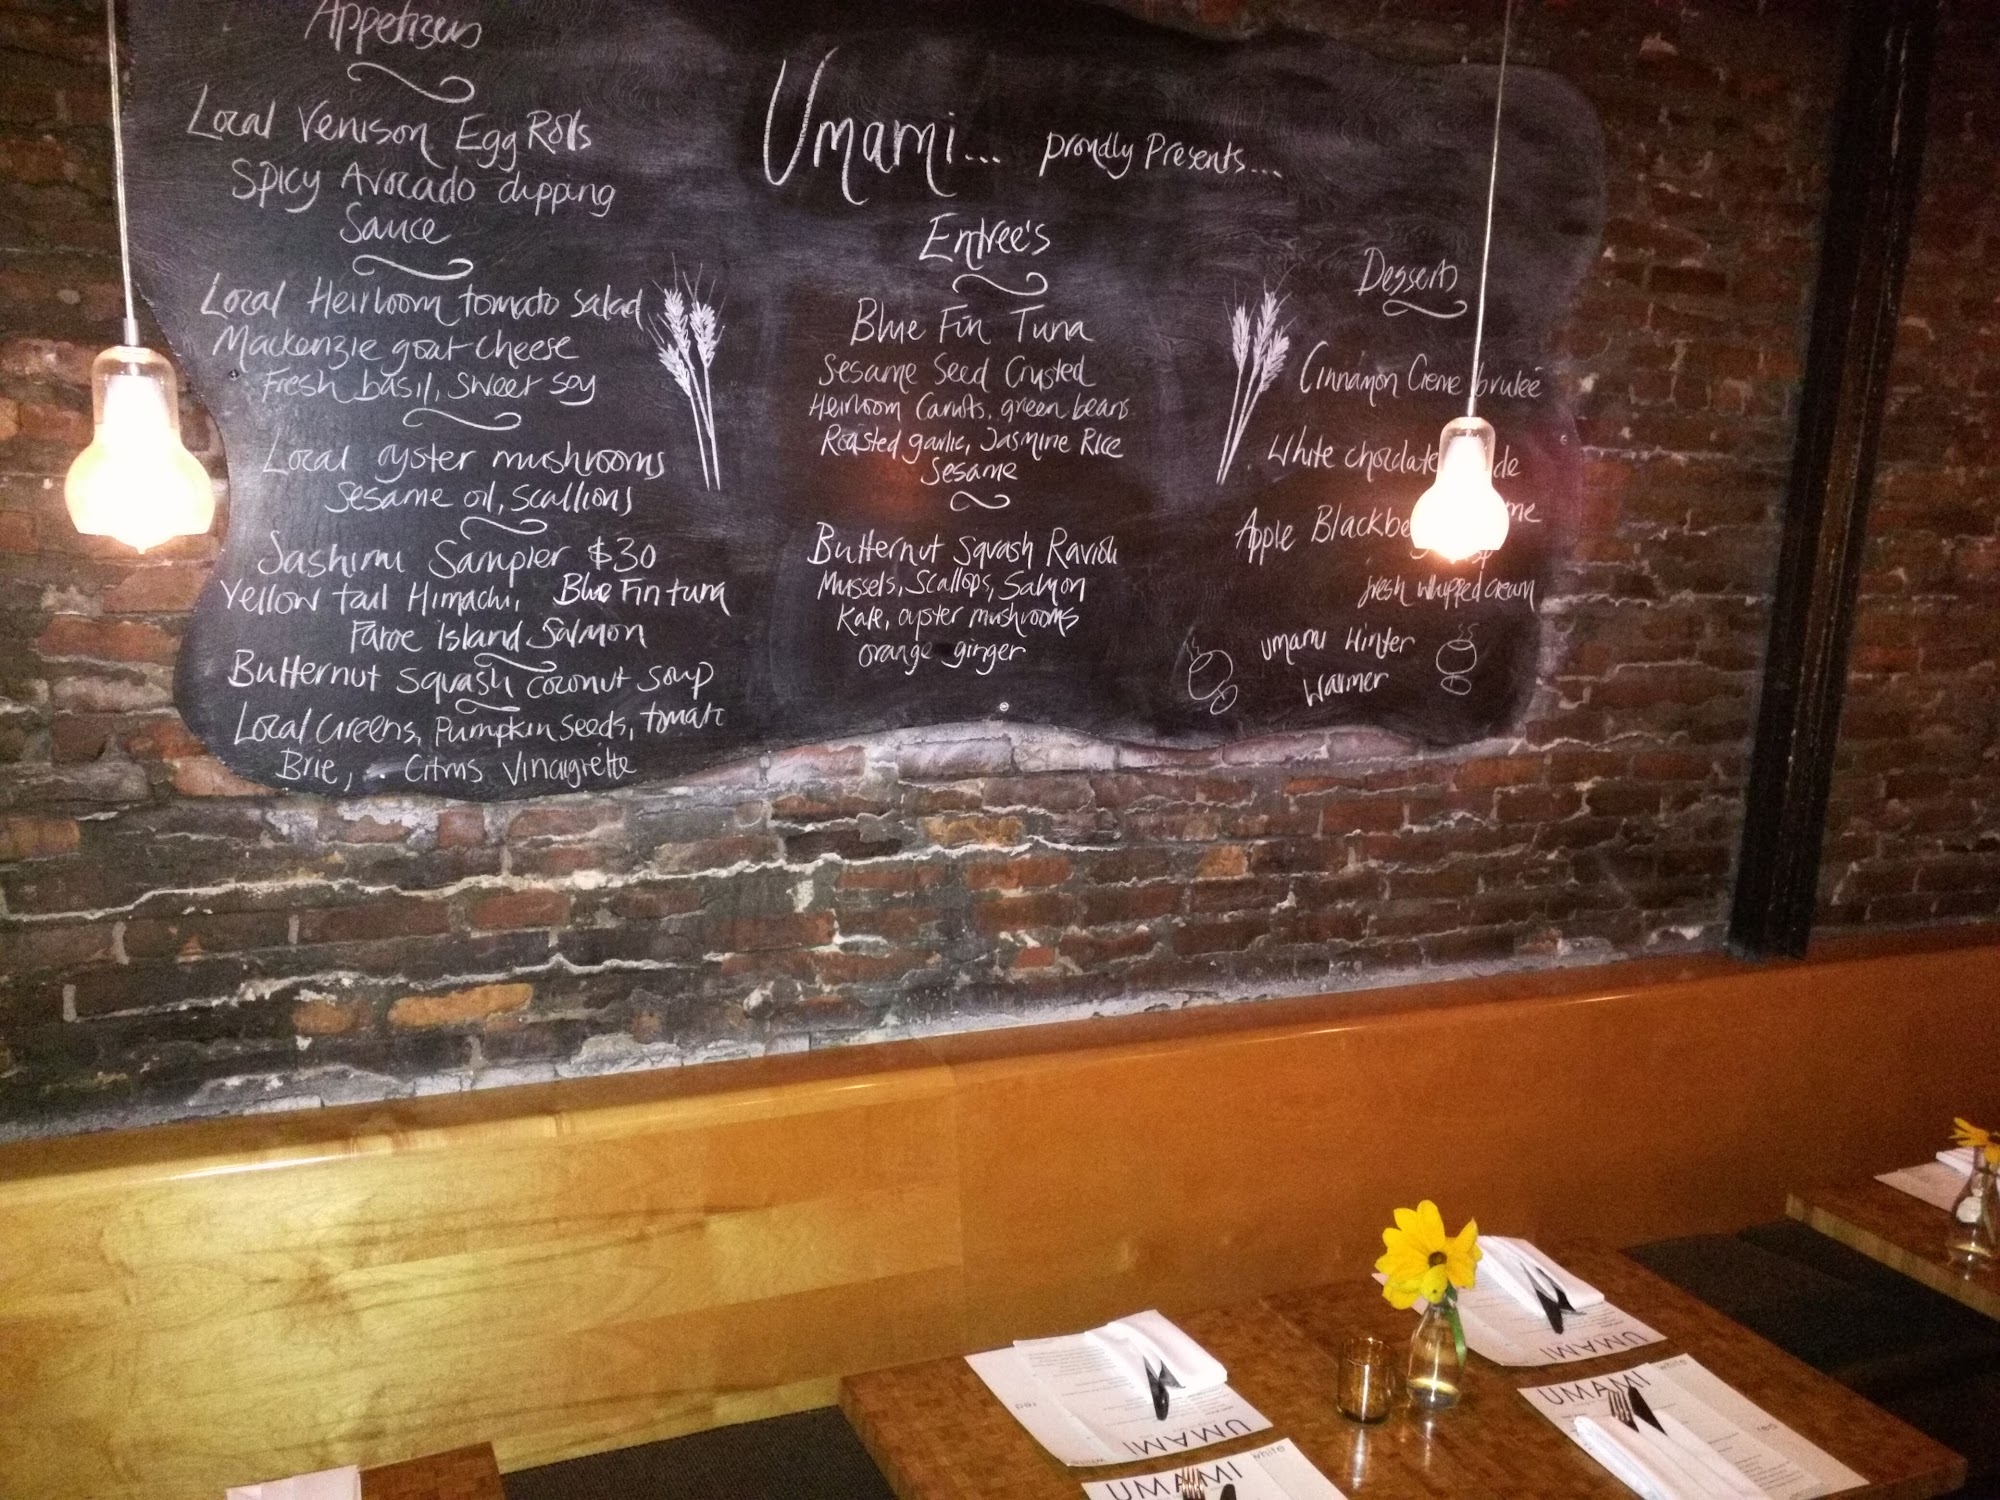 Appetizers
Local Venison Egg Rolls
Spicy Avocado dipping
Sauce
Local Heirloom tomato salad
Mackenzie goat cheese
Fresh basil, sweet soy
Local oyster mushrooms
Sesame oil, scallions
Sashimi Sampler $30
Yellow tail Himachi, Blue Fin tuna
Faroe Island Salmon
Butternut squash coconut soup
Local Greens, Pumpkin seeds, tomato
Brie, Citrus Vinaigrette
Umami... proudly Presents...
Entree's
Blue Fin Tuna
Sesame Seed Crusted
Heirloom Carrots, green beans
Roasted garlic, Jasmine Rice
Sesame
Butternut Squash Ravioli
Mussels, Scallops, Salmon
Kale, oyster mushrooms
orange ginger
Desserts
Cinnamon Creme brulee
White chocolate
Apple
fresh whipped cream
Umami Winter
Warmer
UMAMI
white
red
UMAMI
UMAMI
white
red
UMAMI
white